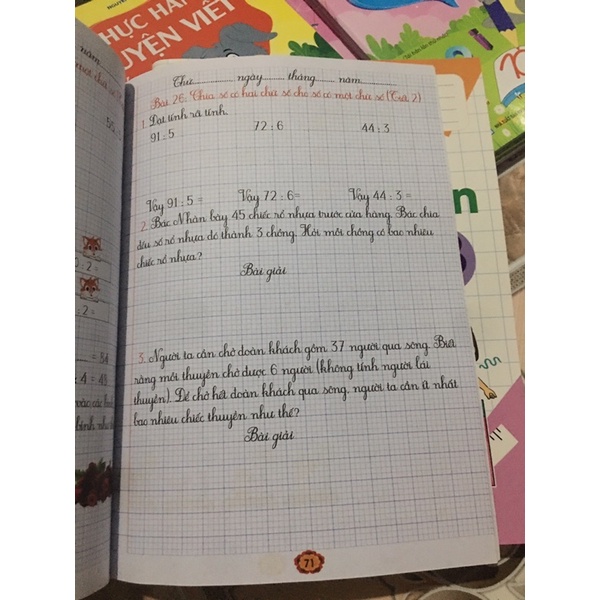 NGUYỄN
HỰC HÀ
UYỆN VIẾT
năm
Thứ................ ngày......... tháng....... năm............
Bài 26: Chia số có hai chữ số cho số có một chữ số (Tiết 2)
1. Đặt tính rồi tính.
91 : 5 72 : 6 44 : 3
Vậy 91 : 5 = Vậy 72 : 6 = Vậy 44 : 3 =
2. Bác Nhân bày 45 chiếc rổ nhựa trước cửa hàng. Bác chia
đều số rổ nhựa đó thành 3 chồng. Hỏi mỗi chồng có bao nhiêu
chiếc rổ nhựa?
Bài giải
3. Người ta cần chở đoàn khách gồm 37 người qua sông. Biết
rằng mỗi thuyền chở được 6 người (không tính người lái
thuyền). Để chở hết đoàn khách qua sông, người ta cần ít nhất
bao nhiêu chiếc thuyền như thế?
Bài giải
: 2 =
: 2 =
= 84
: 4 = 48
71